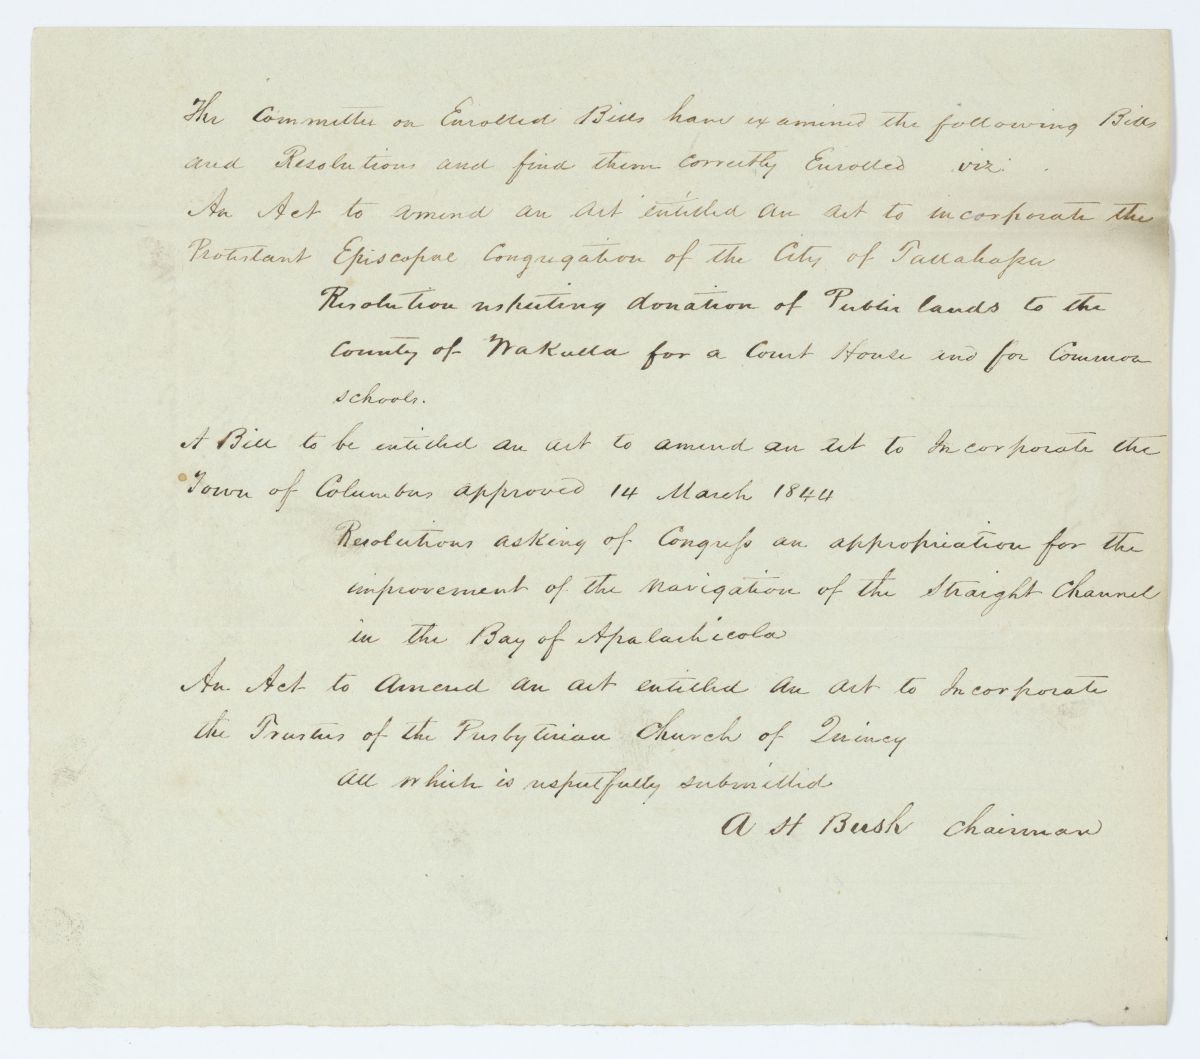 The Committee on Enrolled Bills have examined the following Bills
and Resolutions and find them correctly Enrolled viz.
An Act to amend an act entitled an act to incorporate the
Protestant Episcopal Congregation of the City of Tallahassee
Resolution respecting donation of Public lands to the
County of Wakulla for a Court House and for Common
schools.
A Bill to be entitled an act to amend an act to Incorporate the
Town of Columbus approved 14 March 1844
Resolutions asking of Congress an appropriation for the
improvement of the navigation of the Straight Channel
in the Bay of Apalachicola
An Act to Amend an act entitled an act to Incorporate
the Trustees of the Presbyterian Church of Quincy
all which is respectfully submitted
A H Bush Chairman